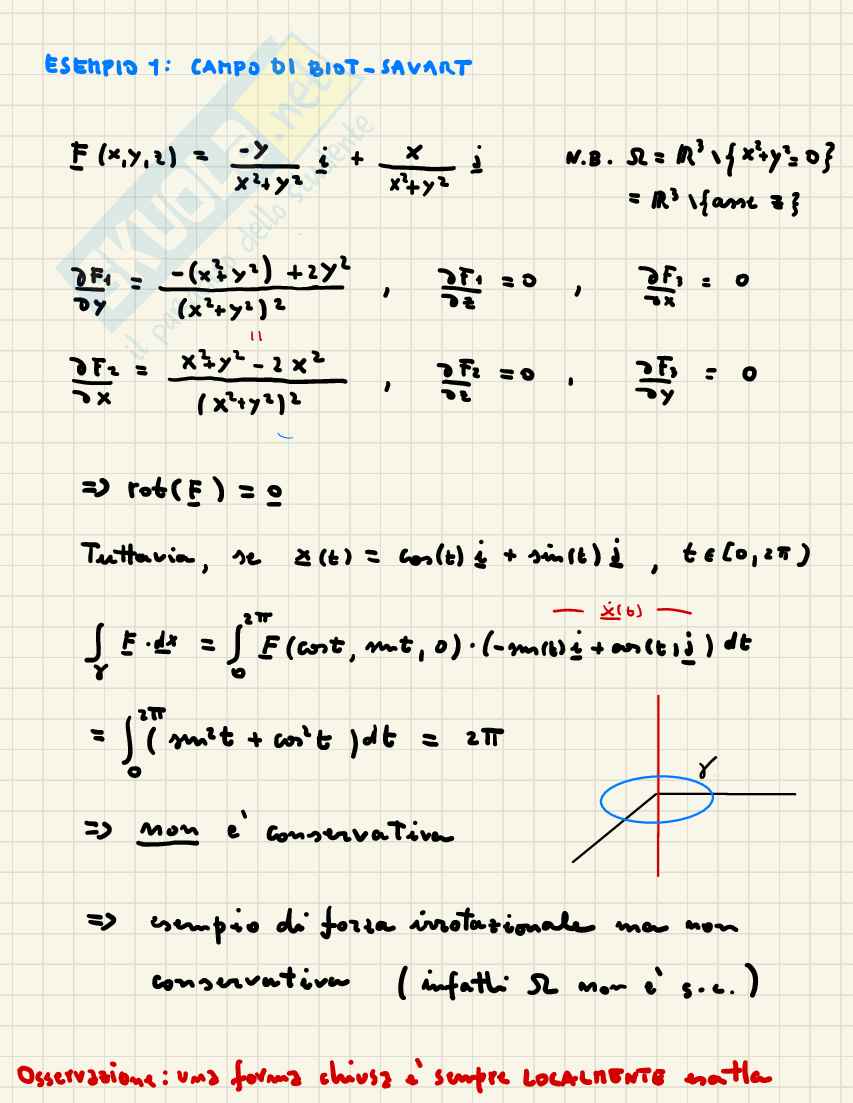 ESEMPIO 1: CAMPO DI BIOT-SAVART
F (x,y,z) = -y/(x²+y²) i + x/(x²+y²) j N.B. Ω = ℝ³ \ {x²+y²=0}
= ℝ³ \ {asse z}
∂F₁/∂y = (-(x²+y²) + 2y²)/(x²+y²)² , ∂F₁/∂z = 0 , ∂F₃/∂x = 0
=
∂F₂/∂x = (x²+y² - 2x²)/(x²+y²)² , ∂F₂/∂z = 0 , ∂F₃/∂y = 0
=> rot(F) = 0
Tuttavia, se x(t) = cos(t) i + sin(t) j , t ∈ [0, 2π)
ẋ(t)
∫_γ F · dx = ∫_0^{2π} F (cos t, sin t, 0) · (-sin(t) i + cos(t) j) dt
= ∫_0^{2π} (sin² t + cos² t) dt = 2π
γ
=> non e' conservativa
=> esempio di forza irrotazionale ma non
conservativa (infatti Ω non e' s.c.)
Osservazione: una forma chiusa e' sempre LOCALMENTE esatta
SKUOLA.net
il paradiso dello studente